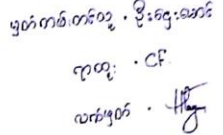 မှတ်တမ်းတင်သူ . ဦးဌေးအောင်
ရာထူး . CF
လက်မှတ် .